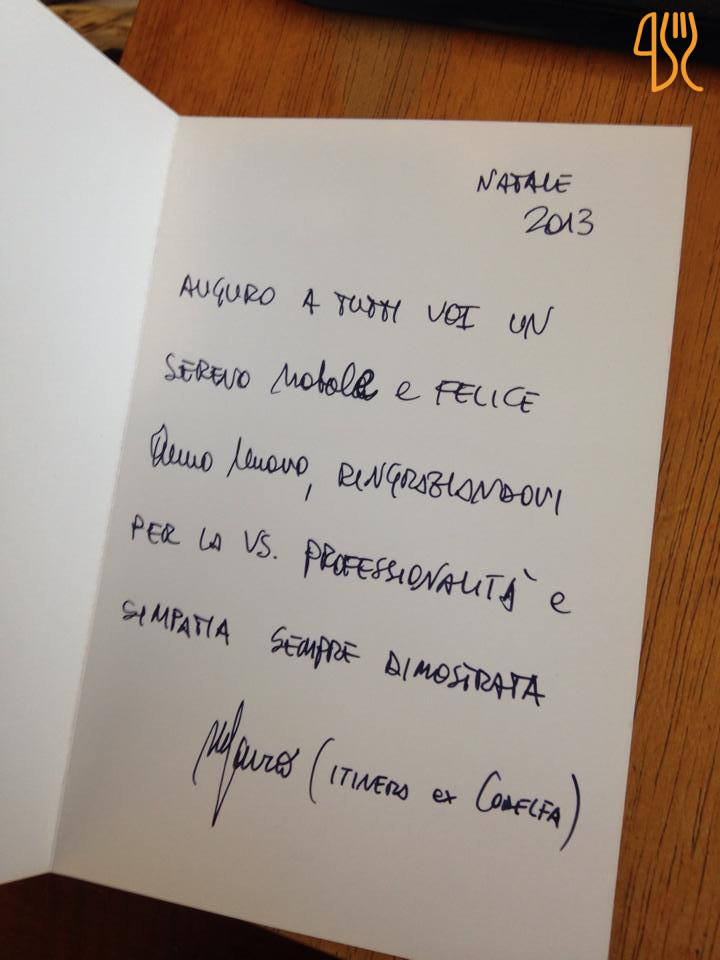 NATALE
2013
AUGURO A TUTTI VOI UN
SERENO Natale e FELICE
Anno Nuovo, RINGRAZIANDOVI
PER LA VS. PROFESSIONALITÀ e
SIMPATIA SEMPRE DIMOSTRATA
Mauro (ITINERA ex CODELFA)